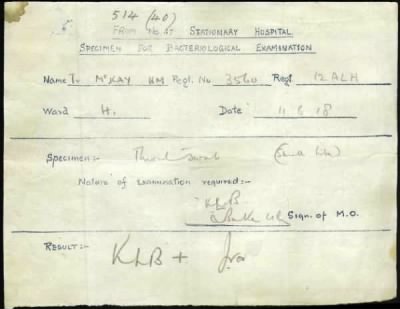 514 (40)
FROM No. 47 STATIONARY HOSPITAL
SPECIMEN FOR BACTERIOLOGICAL EXAMINATION
Name Tr McKAY HM Regl. No 3560 Regt. 12 ALH
Ward H. Date 11 6 18
Specimen:- Throat Swab
Nature of Examination required:-
KLB
Sign. of M.O.
RESULT:- KLB +